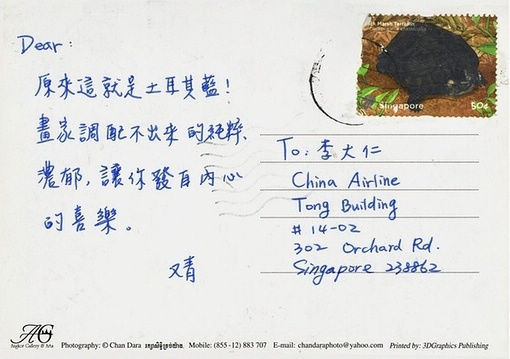 Dear:
原來這就是土耳其藍!
畫家調配不出來的純粹、
濃郁,讓你發自內心
的喜樂。
又青
Marsh Terrapin
Singapore 50¢
To: 李大仁
China Airline
Tong Building
# 14-02
302 Orchard Rd.
Singapore 238862
AG
Angkor Gallery & Arts
Photography: © Chan Dara Mobile: (855 -12) 883 707 E-mail: chandaraphoto@yahoo.com Printed by: 3DGraphics Publishing